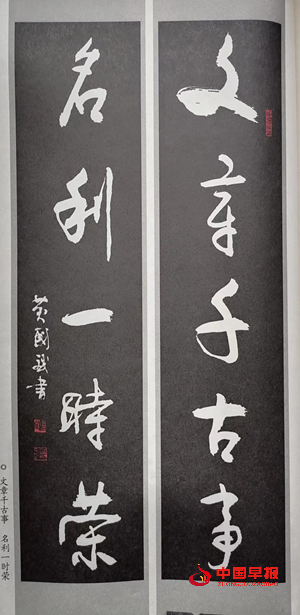 文章千古事
名利一時荣
黄國武書
文章千古事 名利一时荣
中国早报